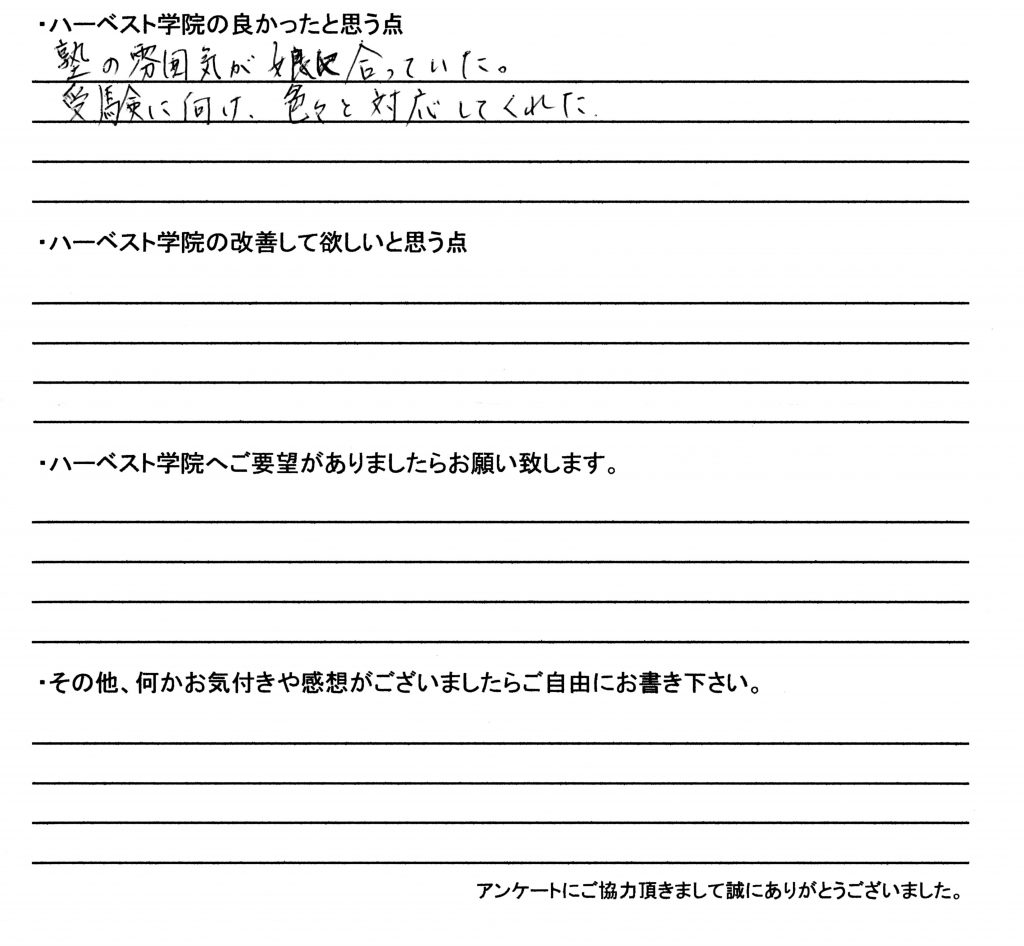 ・ハーベスト学院の良かったと思う点
塾の雰囲気が娘に合っていた。
受験に向け、色々と対応してくれた.
・ハーベスト学院の改善して欲しいと思う点
・ハーベスト学院へご要望がありましたらお願い致します。
・その他、何かお気付きや感想がございましたらご自由にお書き下さい。
アンケートにご協力頂きまして誠にありがとうございました。